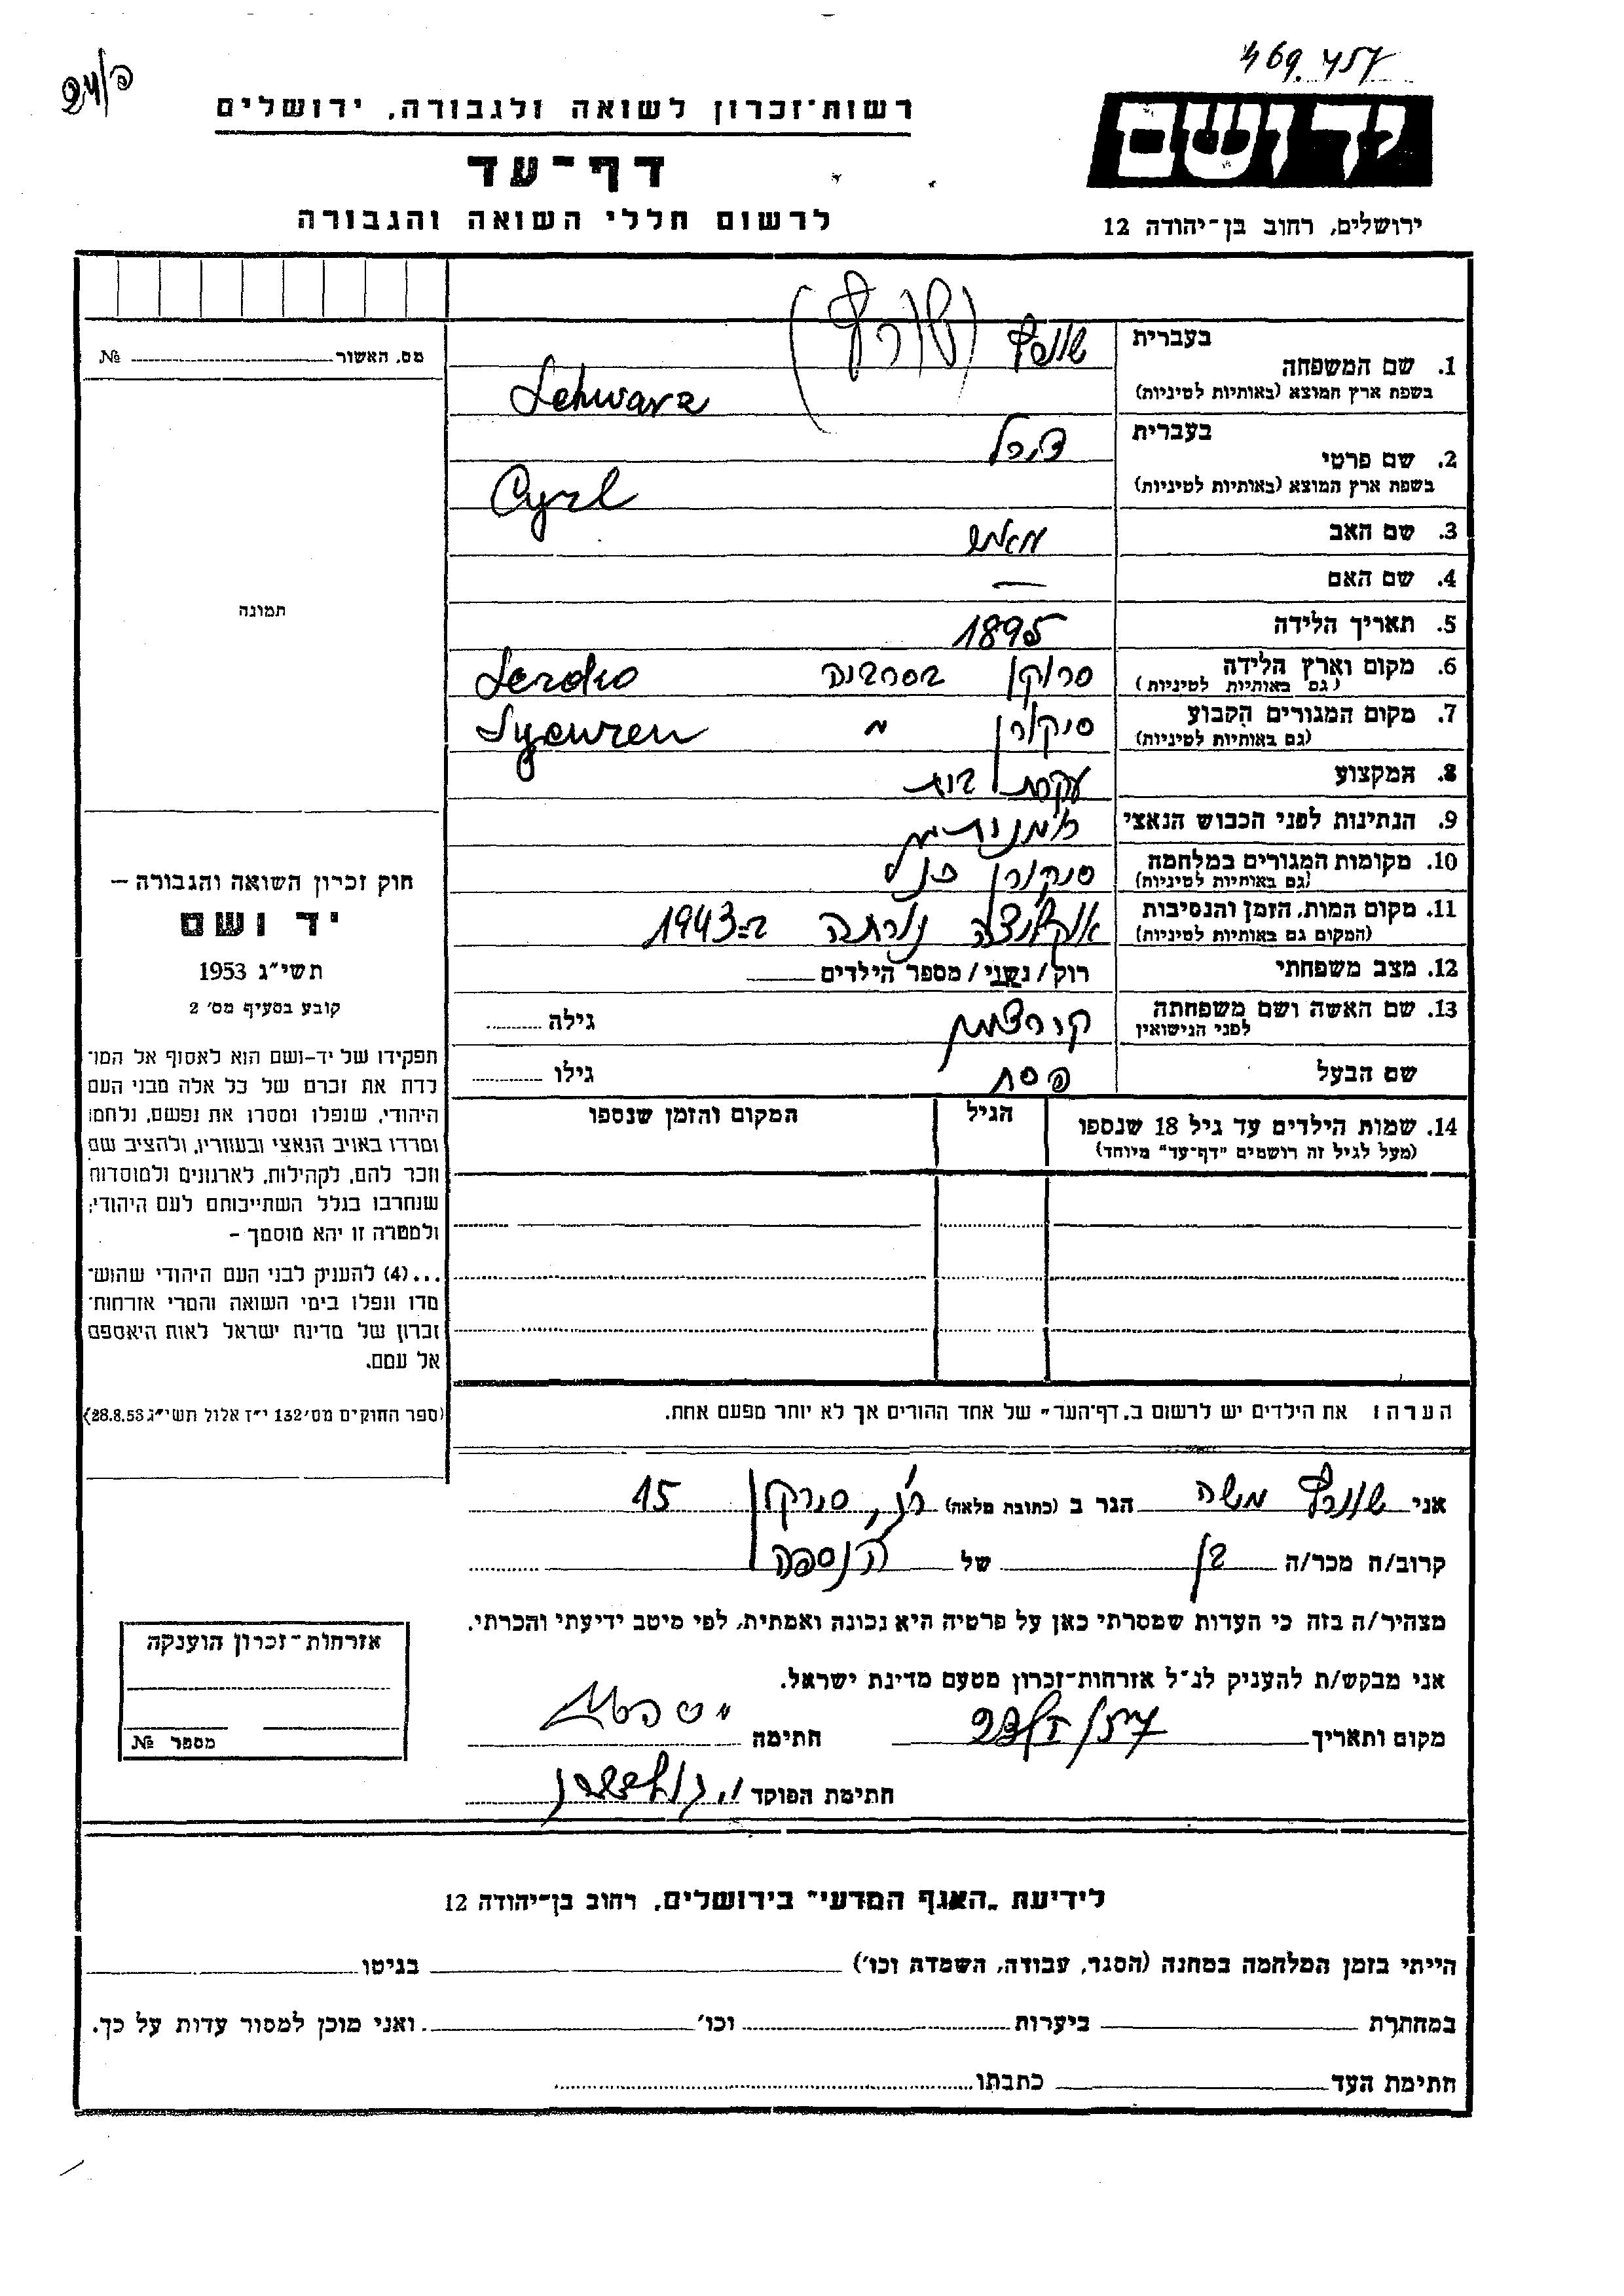 469.457
24/פ
רשות־זכרון לשואה ולגבורה, ירושלים
יד ושם
דף־עד
לרשום חללי השואה והגבורה
ירושלים, רחוב בן־יהודה 12
בעברית
1. שם המשפחה
שוורץ (שורץ)
(בשפת ארץ המוצא (באותיות לטיניות
Schwarz
בעברית
2. שם פרטי
צירל
(בשפת ארץ המוצא (באותיות לטיניות
Cyrl
3. שם האב
4. שם האם —
5. תאריך הלידה 1895
6. מקום וארץ הלידה
(גם באותיות לטיניות)
7. מקום המגורים הקבוע
(גם באותיות לטיניות)
8. המקצוע עקרת בית
9. הנתינות לפני הכבוש הנאצי
10. מקומות המגורים במלחמה
(גם באותיות לטיניות)
11. מקום המות, הזמן והנסיבות
ב=1943
(המקום גם באותיות לטיניות)
12. מצב משפחתי רוק / נשוי / מספר הילדים
13. שם האשה ושם משפחתה
לפני הנישואין
גילה
שם הבעל פסח גילו
14. שמות הילדים עד גיל 18 שנספו
(מעל לגיל זה רושמים "דף־עד" מיוחד)
הגיל
המקום והזמן שנספו
הערה: את הילדים יש לרשום ב"דף־העד" של אחד ההורים אך לא יותר מפעם אחת.
אני שוורץ משה הגר ב (כתובת מלאה) 15
קרוב/ה מכר/ה בן של הנספה
מצהיר/ה בזה כי העדות שמסרתי כאן על פרטיה היא נכונה ואמתית, לפי מיטב ידיעתי והכרתי.
אני מבקש/ת להעניק לנ"ל אזרחות־זכרון מטעם מדינת ישראל.
מקום ותאריך
חתימה
חתימת הפוקד
מס. האשור №
תמונה
חוק זכרון השואה והגבורה —
יד ושם
תשי"ג 1953
קובע בסעיף מס' 2
תפקידו של יד-ושם הוא לאסוף אל המו־
לדת את זכרם של כל אלה מבני העם
היהודי, שנפלו ומסרו את נפשם, נלחמו
ומרדו באויב הנאצי ובעוזריו, ולהציב שם
וזכר להם, לקהילות, לארגונים ולמוסדות
שנחרבו בגלל השתייכותם לעם היהודי;
ולמטרה זו יהא מוסמך –
...(4) להעניק לבני העם היהודי שהוש־
מדו ונפלו בימי השואה והמרי אזרחות־
זכרון של מדינת ישראל לאות היאספם
אל עמם.
(ספר החוקים מס' 132 י"ז אלול תשי"ג 28.8.53)
אזרחות־זכרון הוענקה
מספר №
לידיעת "האגף המדעי" בירושלים, רחוב בן־יהודה 12
הייתי בזמן המלחמה במחנה (הסגר, עבודה, השמדה וכו') בגיטו
במחתרת ביערות וכו' ואני מוכן למסור עדות על כך.
חתימת העד כתבתו